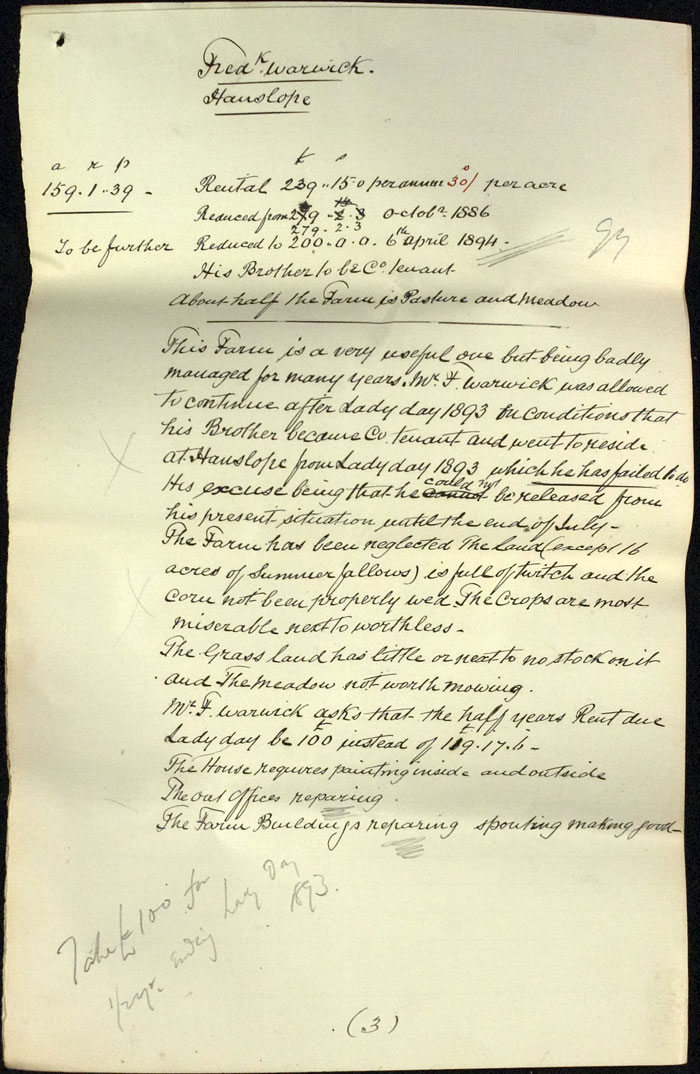 Fredk. Warwick.
Hanslope
a r p
159.1.39 -
£ s
Rental 239..15.0 per annum 30/ per acre
Reduced from 279 .. 2.3 Octobr. 1886
279.. 2.3
To be further Reduced to 200.0.0. 6th April 1894 -
His Brother to be Co. tenant
About half the Farm is Pasture and Meadow
This Farm is a very useful one but being badly
managed for many years. Mr. F. Warwick was allowed
to continue after Lady day 1893 on conditions that
his Brother became Co. tenant and went to reside
at Hanslope from Lady day 1893 which he has failed to do
His excuse being that he cannot could not be released from
his present situation until the end of July -
The Farm has been neglected The land (except 16
acres of Summer fallows) is full of twitch and the
corn not been properly wed. The Crops are most
miserable next to worthless -
The Grass land has little or next to no stock on it
and The meadow not worth mowing.
Mr. F. Warwick asks that the half years Rent due
Lady day be £100 instead of £119.17.6 -
The House requires painting inside and outside
The out Offices reparing.
The Farm Buildings reparing spouting making good -
Take £100 for
1/2 yr. ending Lady Day
1893.
(3)